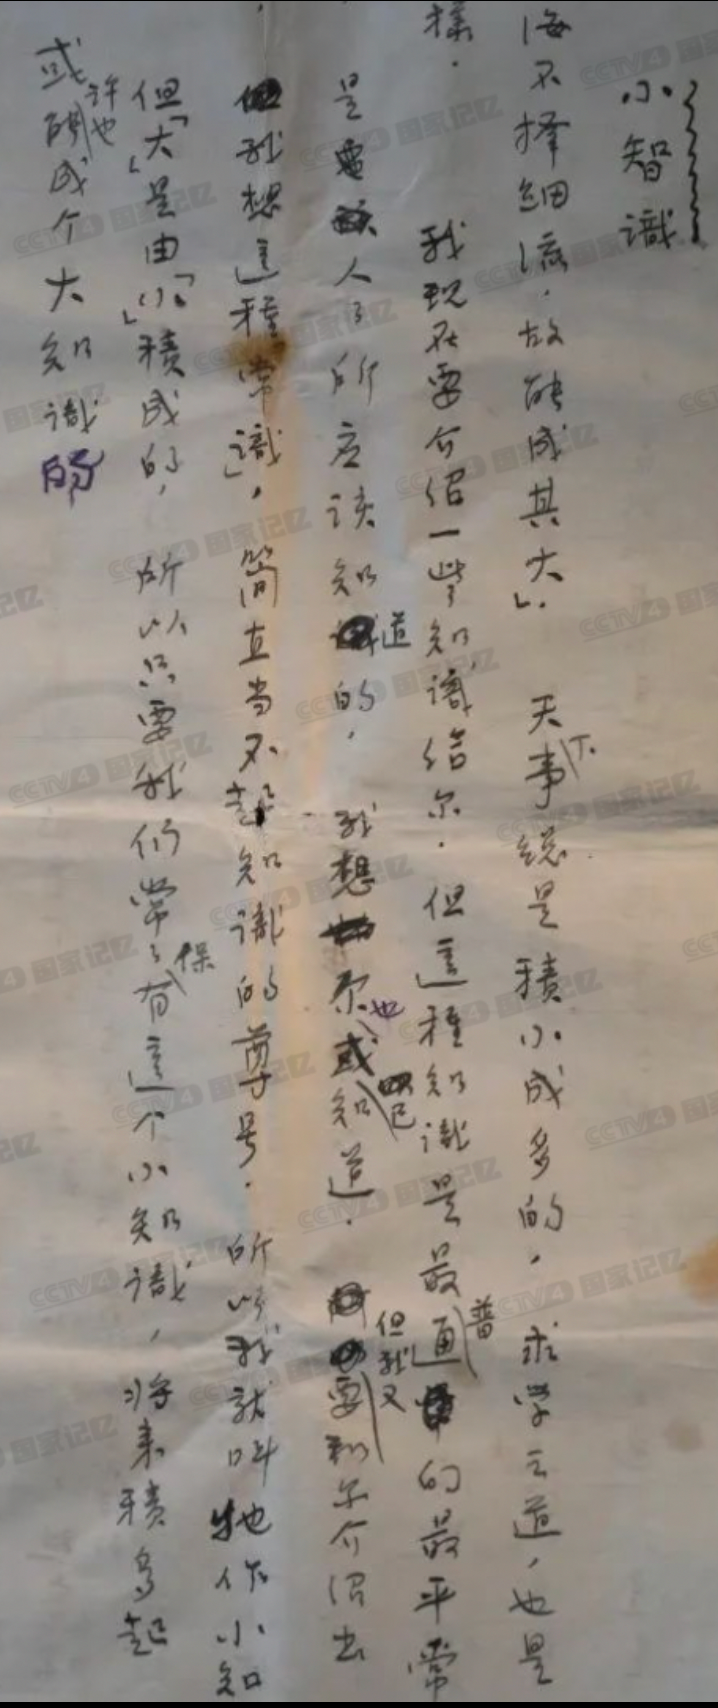 小智識
海不择細流，故能成其大」. 天下事総是積小成多的，求学之道，也是
様. 我现在要介绍一些知識给尔. 但這種知識是最普通的最平常
是人了所应该知道的，我想尔也或已知道. 但我又要和尔介绍出
我想這種「常識」，简直当不起知識的尊号. 所以我就叫牠作小知
但「大」是由「小」積成的，所以只要我们常々保有這个小知識，将来積多起
或許也能成个大知識的
CCTV4 国家记忆